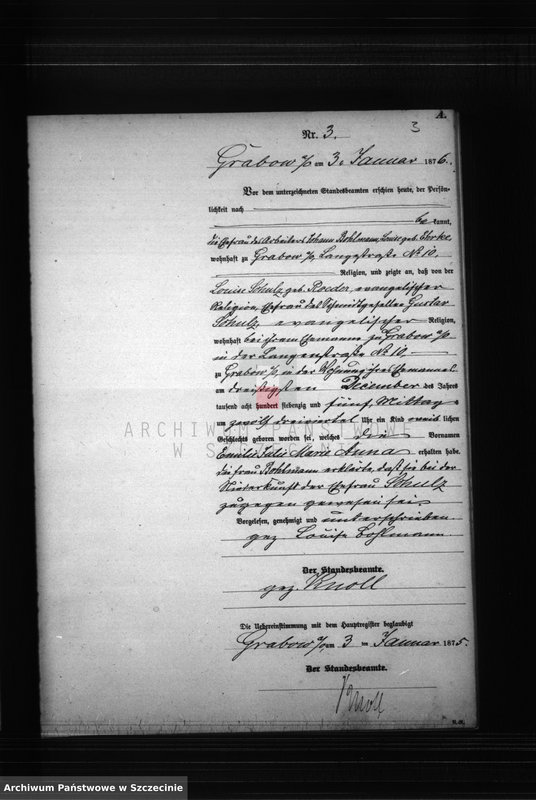 A.
Nr. 3.
3
Grabow a/O am 3. Januar 1876.
Vor dem unterzeichneten Standesbeamten erschien heute, der Persön-
lichkeit nach
be kannt,
die Ehefrau des Arbeiters Johann Bohlmann, Louise geb.
wohnhaft zu Grabow a/O, Langestraße No 10,
Religion, und zeigte an, daß von der
Louise Schulz geb. Roeder, evangelischer
Religion, Ehefrau des Schmidtgesellen Gustav
Schulz, evangelischer Religion,
wohnhaft bei ihrem Ehemanne zu Grabow a/O
in der Langenstraße No 10,
zu Grabow a/O, in der Wohnung ihres Ehemannes
am dreißigsten Dezember des Jahres
tausend acht hundert siebenzig und fünf, Mittag
um zwölf dreiviertel Uhr ein Kind weib lichen
Geschlechts geboren worden sei, welches die Vornamen
Emilie Julie Marie Anna erhalten habe.
die Frau Bohlmann erklärte, daß sie bei der
Niederkunft der Ehefrau Schulz
zugegen gewesen sei
Vorgelesen, genehmigt und unterschrieben
gez. Louise Bohlmann
Der Standesbeamte.
gez. Knoll
Die Uebereinstimmung mit dem Hauptregister beglaubigt
Grabow a/O, am 3 ten Januar 1875.
Der Standesbeamte.
Knoll
ARCHIWUM PAŃSTWOWE
W SZCZECINIE
Archiwum Państwowe w Szczecinie